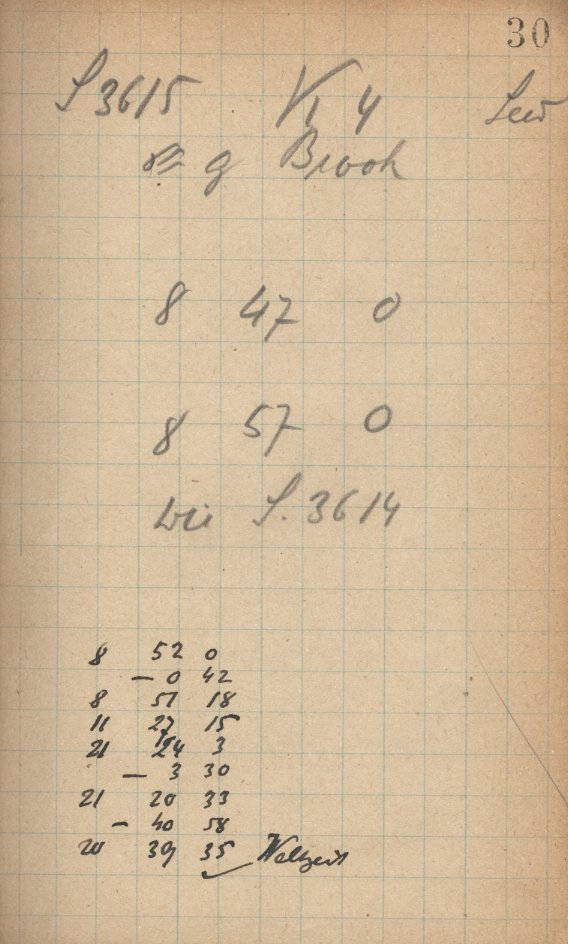 30
S 3615 4
g Brook
8 47 0
8 57 0
wie S. 3614
8 52 0
— 0 42
8 51 18
11 27 15
21 24 3
— 3 30
21 20 33
— 40 58
20 39 35 Weltzeit